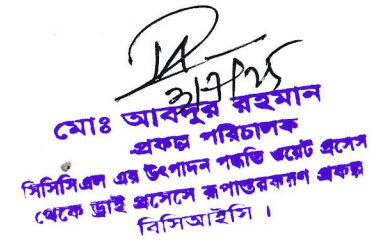 মোঃ আবদুর রহমান
প্রকল্প পরিচালক
সিসিসিএল এর উৎপাদন পদ্ধতি ওয়েট প্রসেস
থেকে ড্রাই প্রসেসে রূপান্তরকরণ প্রকল্প
বিসিআইসি ।